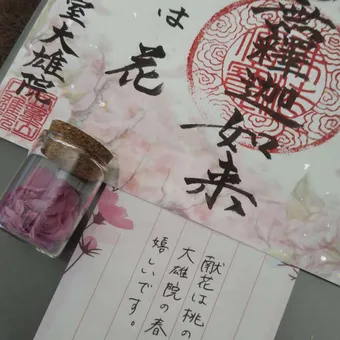 無釋迦如来
は花
室大雄院
献花は桃の
大雄院の春
嬉しいです。